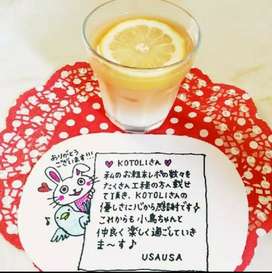 ありがとう
ございます!!!
♥ KOTOLIさん ♥
私のお粗末レポの数々を
たくさん工程の方へ載せ
て頂き、KOTOLIさんの
優しさに心から感謝です♪
これからも小鳥ちゃんと
仲良く楽しく過ごしていき
ま〜す♪
USAUSA